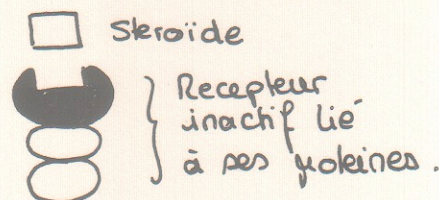 Steroïde
Recepteur
inactif lié
à ses proteines.